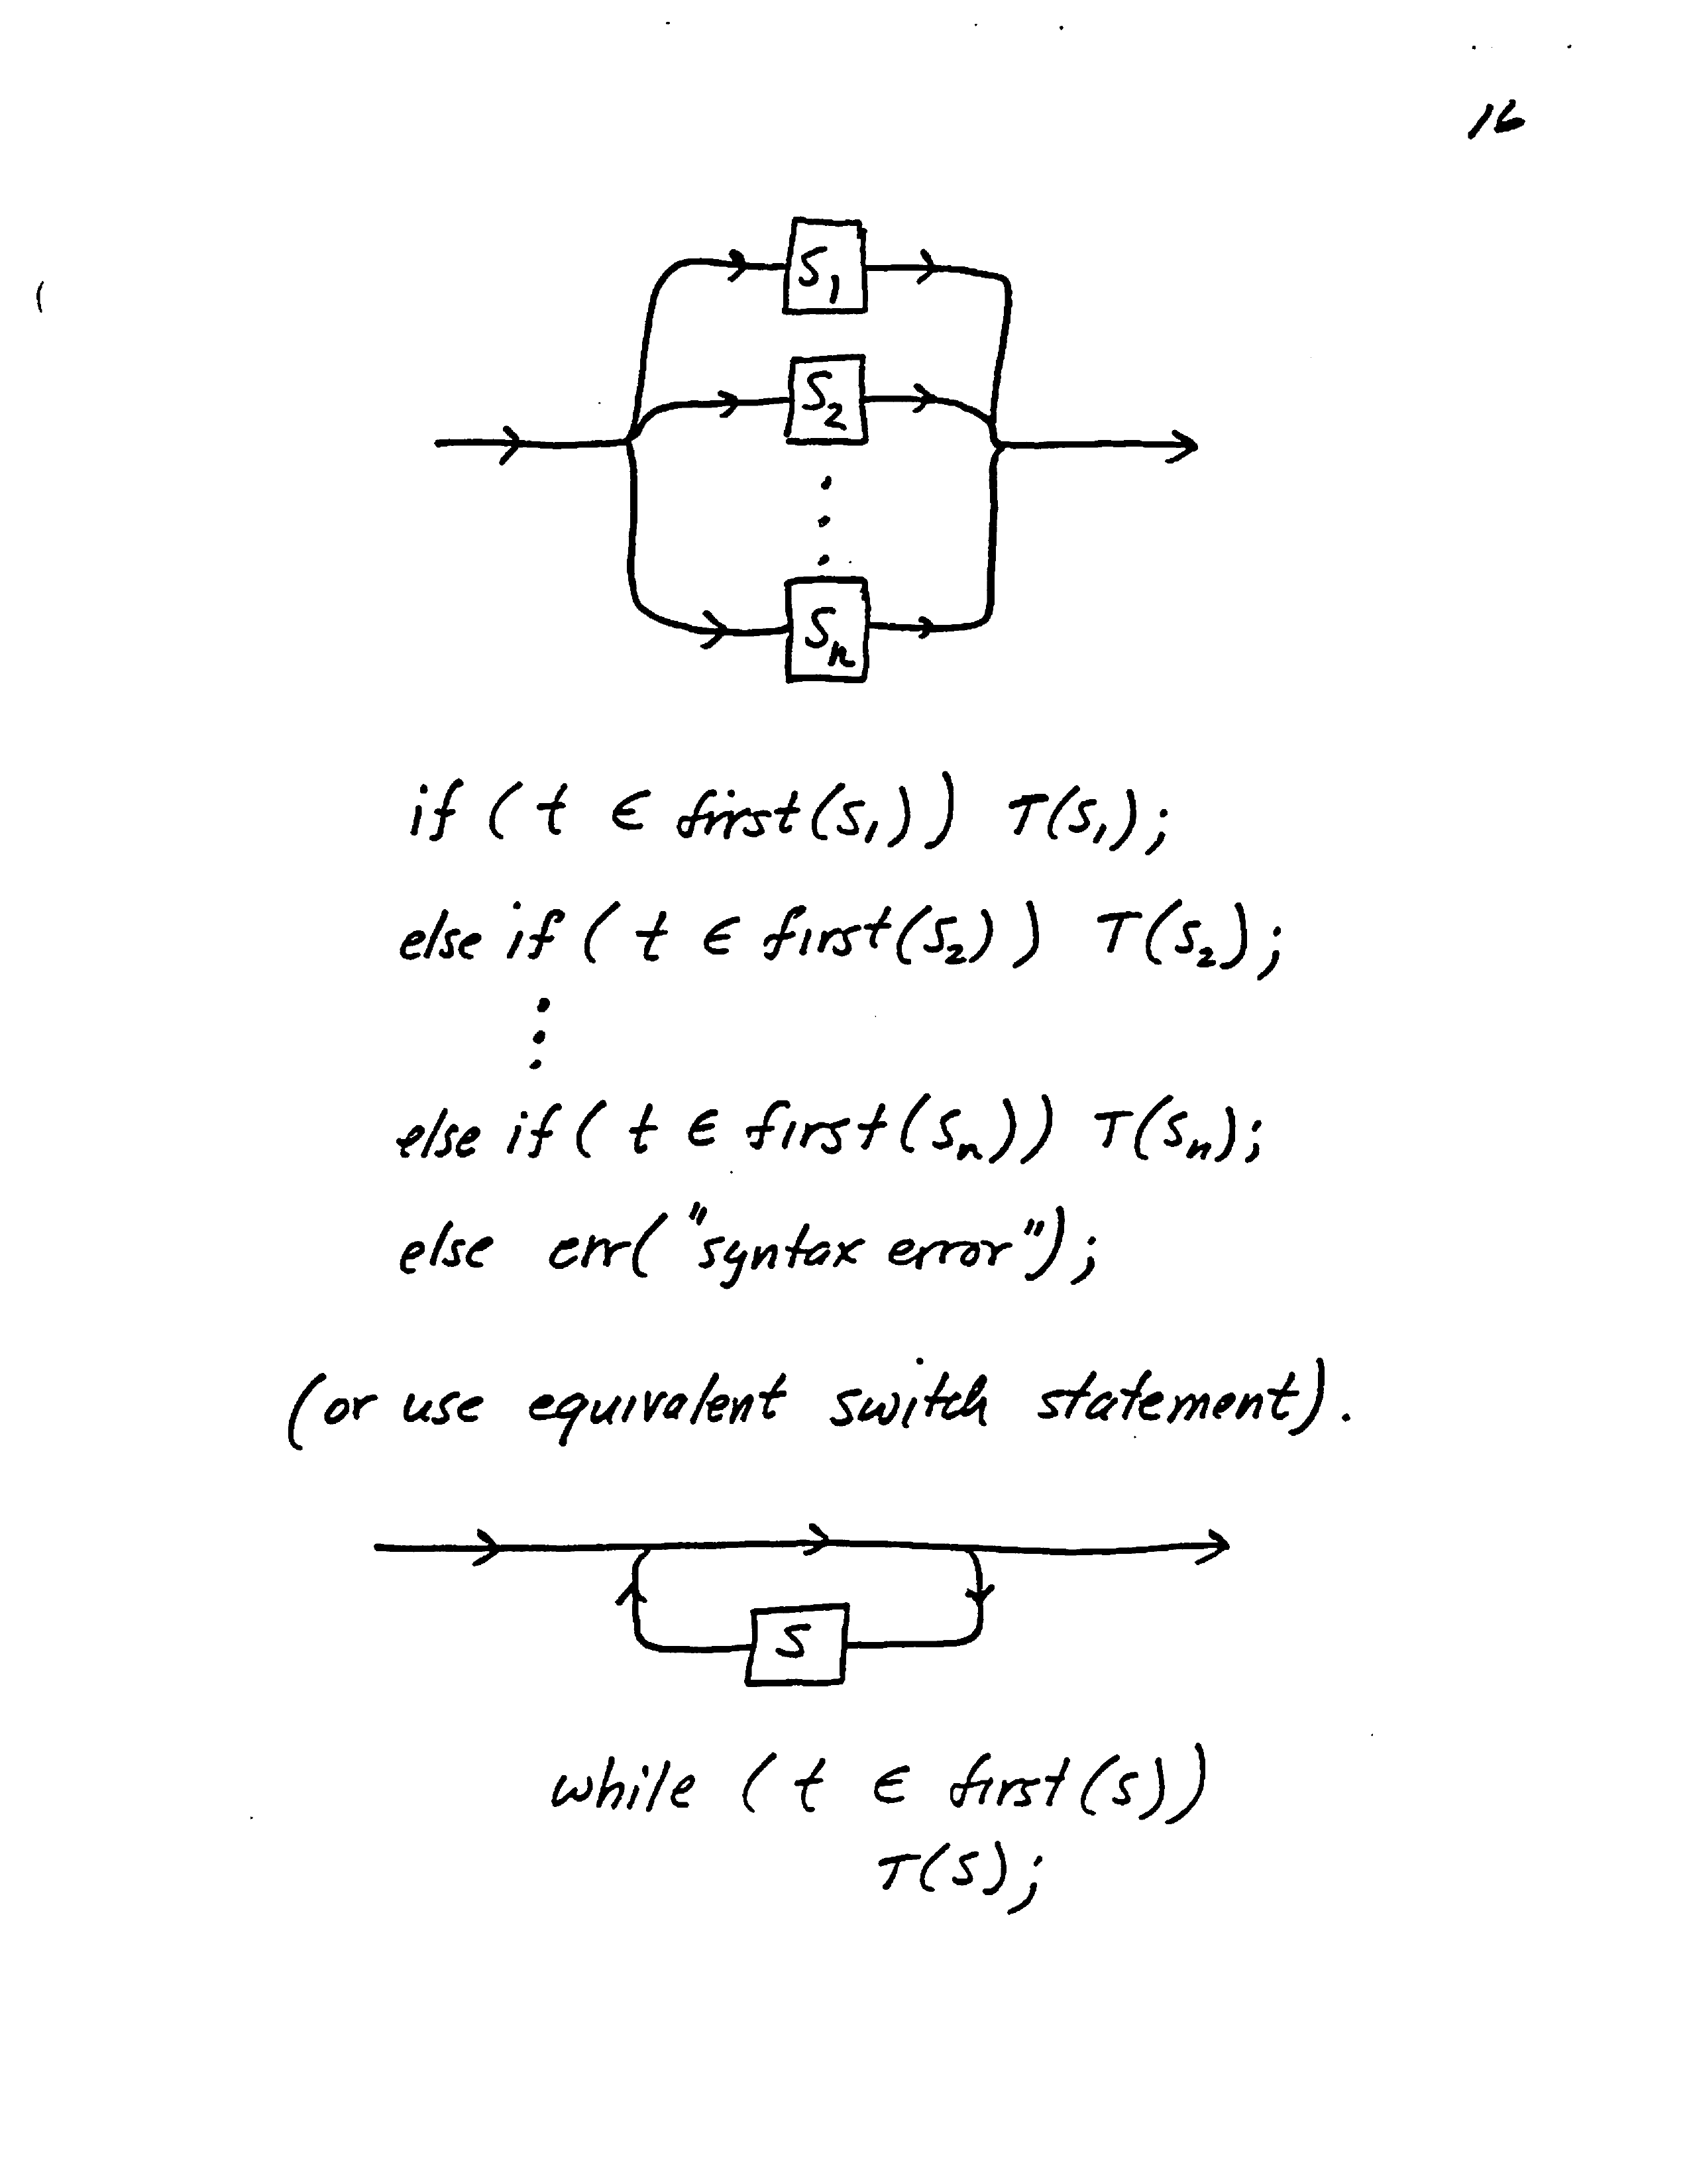 16
S₁
S₂
Sₙ
if ( t ∈ first(S₁)) T(S₁);
else if ( t ∈ first(S₂)) T(S₂);
else if ( t ∈ first(Sₙ)) T(Sₙ);
else err("syntax error");
(or use equivalent switch statement).
S
while ( t ∈ first(S))
T(S);